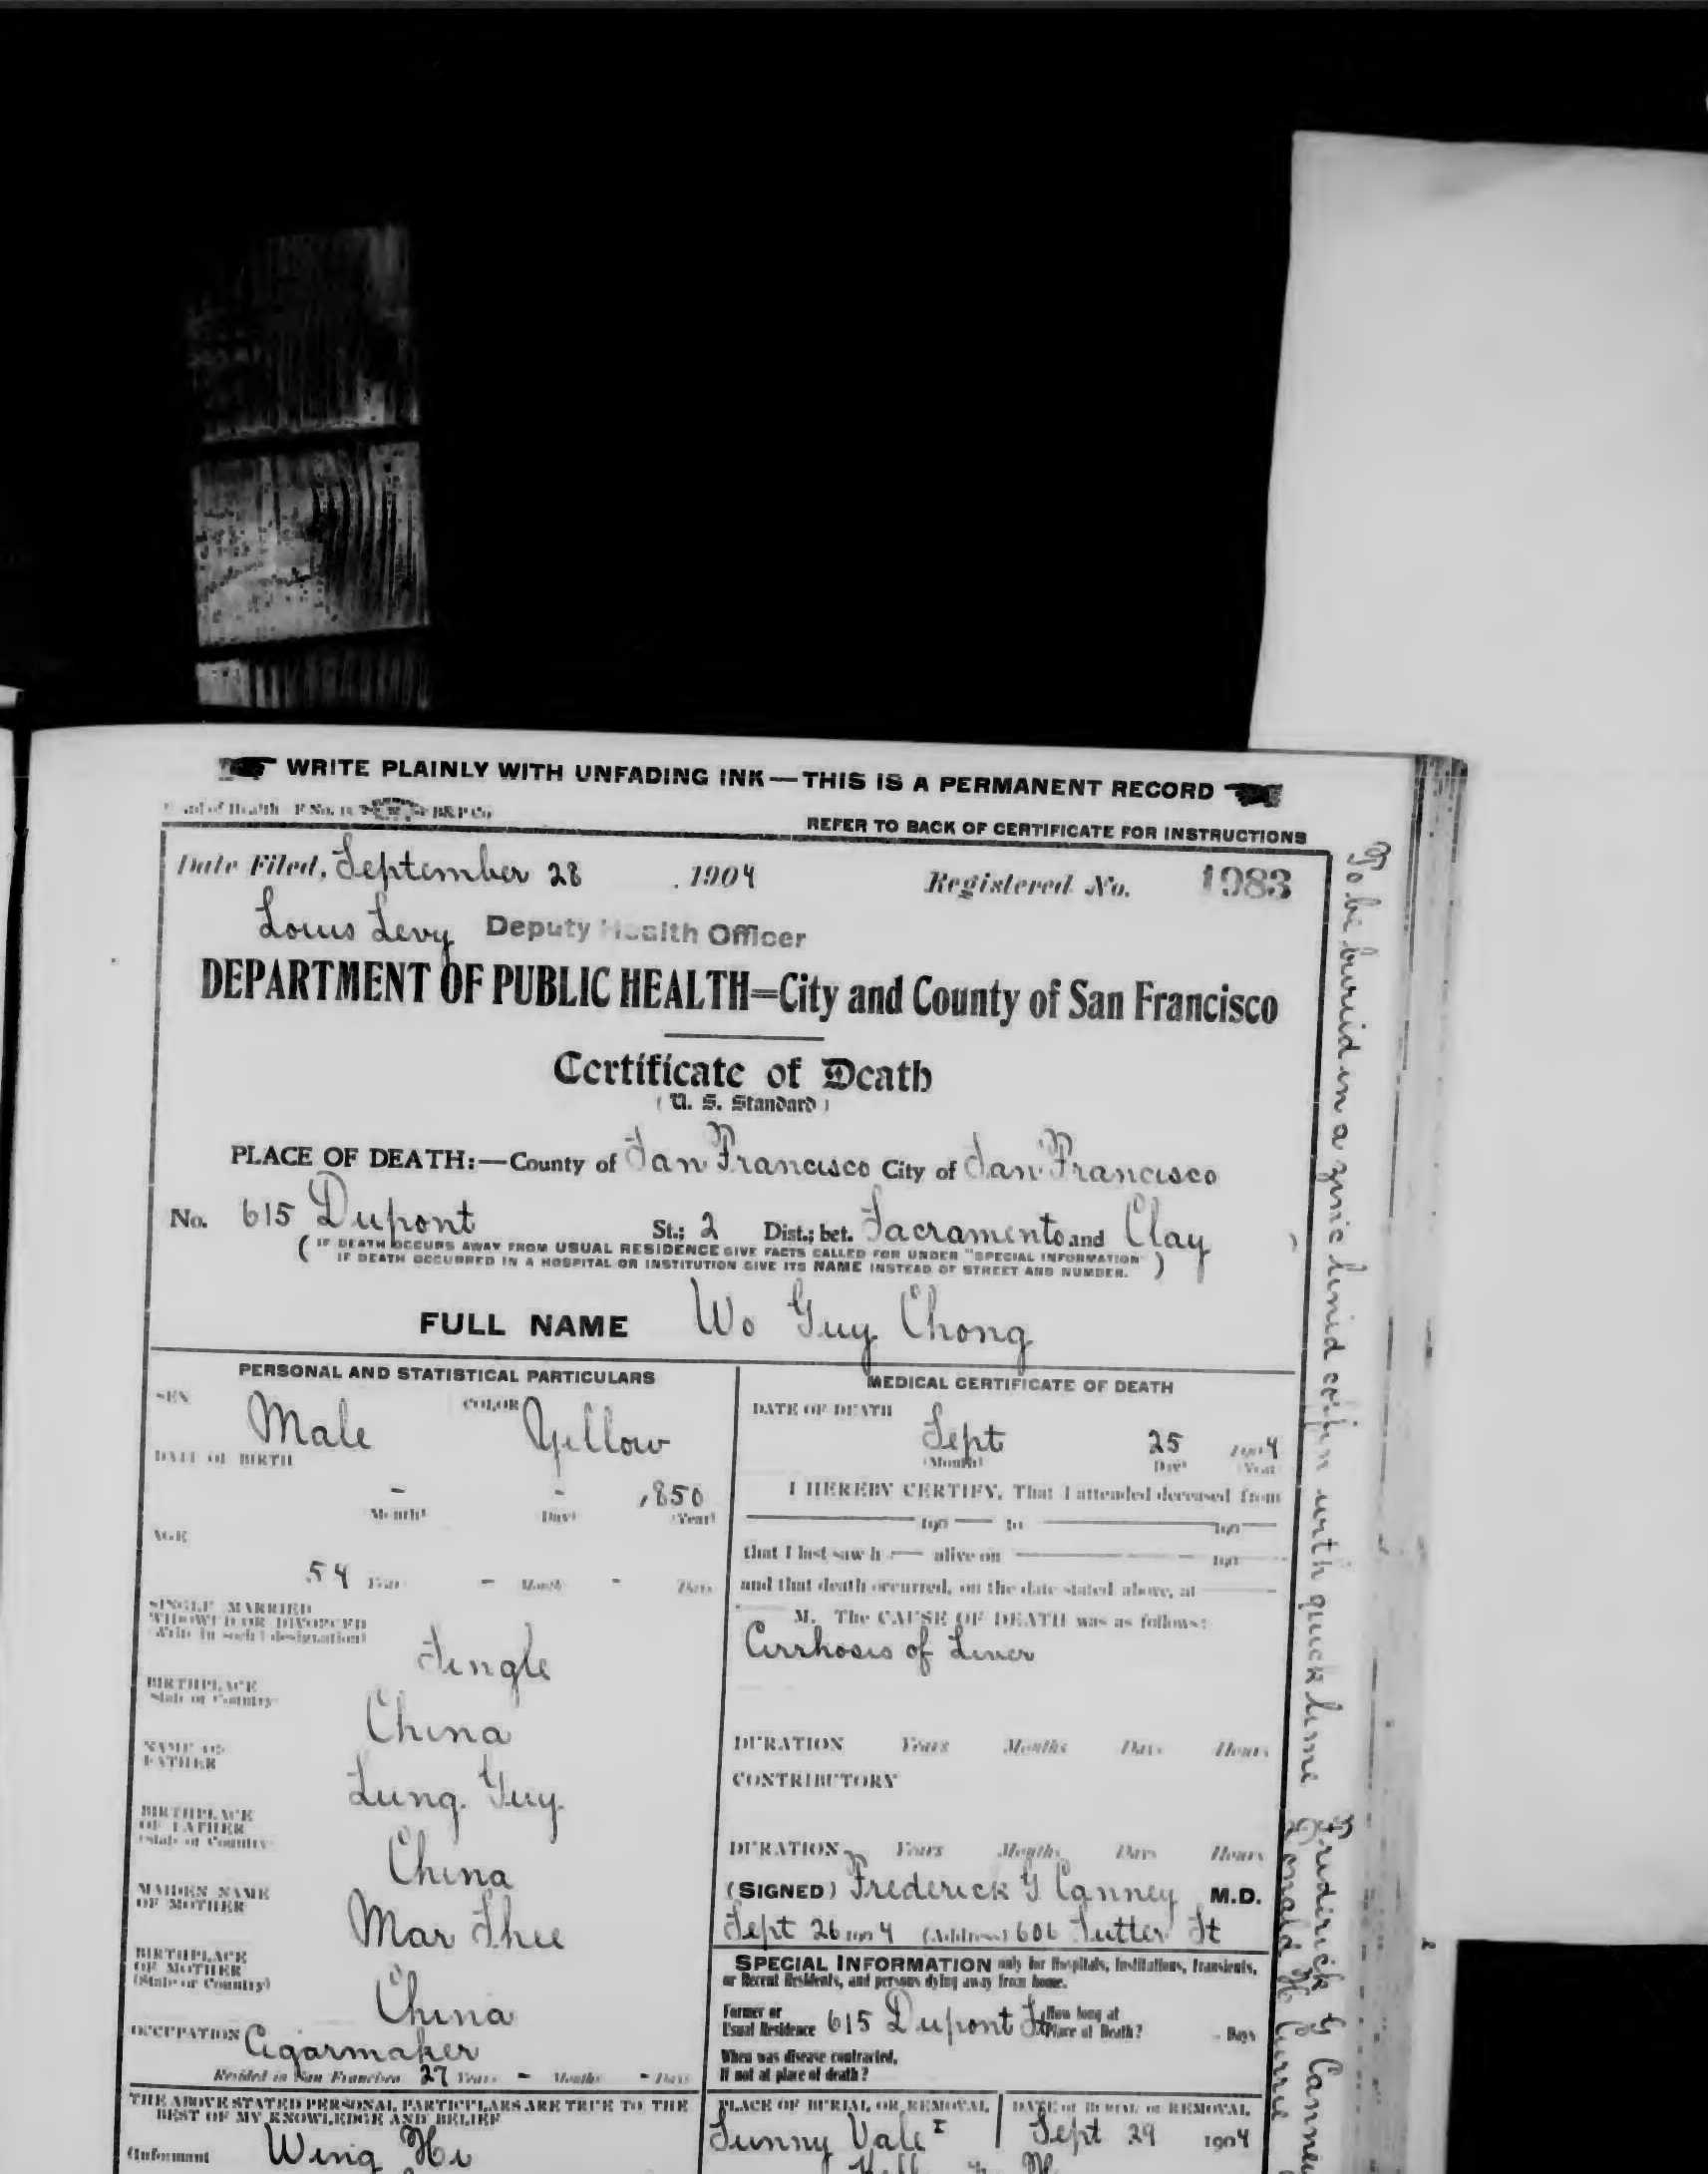 WRITE PLAINLY WITH UNFADING INK—THIS IS A PERMANENT RECORD
REFER TO BACK OF CERTIFICATE FOR INSTRUCTIONS
Date Filed, September 28 1904 Registered No. 1983
Louis Levy Deputy Health Officer
DEPARTMENT OF PUBLIC HEALTH=City and County of San Francisco
Certificate of Death
(U. S. Standard)
PLACE OF DEATH:—County of San Francisco City of San Francisco
No. 615 Dupont St.; 2 Dist.; bet. Sacramento and Clay
(IF DEATH OCCURS AWAY FROM USUAL RESIDENCE GIVE FACTS CALLED FOR UNDER "SPECIAL INFORMATION"
IF DEATH OCCURRED IN A HOSPITAL OR INSTITUTION GIVE ITS NAME INSTEAD OF STREET AND NUMBER.)
FULL NAME Wo Guy Chong
PERSONAL AND STATISTICAL PARTICULARS
SEX Male COLOR Yellow
DATE OF BIRTH
- - 1850
(Month) (Day) (Year)
AGE
54 Years - Months - Days
SINGLE MARRIED
WIDOWED OR DIVORCED
(Write in social designation)
Single
BIRTHPLACE
State or Country
China
NAME OF
FATHER
Lung Guy
BIRTHPLACE
OF FATHER
(State or Country)
China
MAIDEN NAME
OF MOTHER
Mar Shee
BIRTHPLACE
OF MOTHER
(State or Country)
China
OCCUPATION Cigarmaker
Resided in San Francisco 27 Years - Months - Days
THE ABOVE STATED PERSONAL PARTICULARS ARE TRUE TO THE
BEST OF MY KNOWLEDGE AND BELIEF
(Informant Wing Hi
MEDICAL CERTIFICATE OF DEATH
DATE OF DEATH
Sept 25 1904
(Month) (Day) (Year)
I HEREBY CERTIFY, That I attended deceased from
190 to 190
that I last saw h alive on 190
and that death occurred, on the date stated above, at
M. The CAUSE OF DEATH was as follows:
Cirrhosis of Liver
DURATION Years Months Days Hours
CONTRIBUTORY
DURATION Years Months Days Hours
(SIGNED) Frederick G Canney M.D.
Sept 26 1904 (Address) 606 Sutter St
SPECIAL INFORMATION only for Hospitals, Institutions, Transients,
or Recent Residents, and persons dying away from home.
Former or
Usual Residence 615 Dupont St How long at
Place of Death? Days
When was disease contracted,
If not at place of death?
PLACE OF BURIAL OR REMOVAL DATE of BURIAL or REMOVAL
Sunny Vale Sept 29 1904
To be buried in a zinc lined coffin with quick lime Frederick G Canney
Donald H Currie